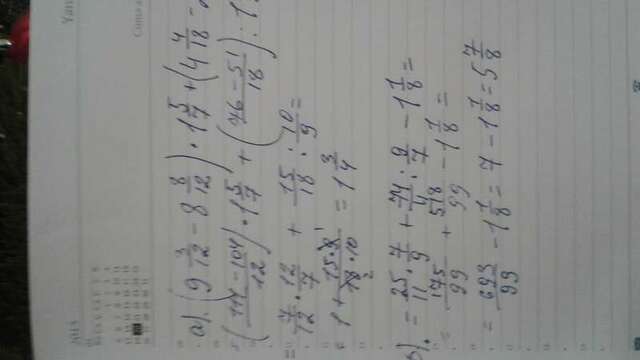 2013 Yan
а). (9 3/12 - 8 8/12) · 1 5/7 + (4 4/18 -
(111-104/12) · 1 5/7 + (76-51/18) : 1
= 7/12 · 12/7 + 15/18 : 10/9 =
1 + 15·9/18·10 = 1 3/4
б). = 25/11 · 7/9 + 74/11 : 9/7 - 1 1/8 =
= 175/99 + 518/99 - 1 1/8 =
= 693/99 - 1 1/8 = 7 - 1 1/8 = 5 7/8